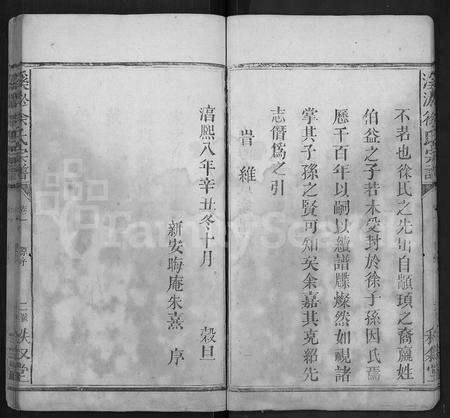 不若也徐氏之先始自顓頊之裔嬴姓
伯益之子若木受封於徐子孫因氏焉
歷千百年以嗣以續譜牒燦然如視諸
掌其子孫之賢可知矣余嘉其克紹先
志僭為之引
旹維
淳熙八年辛丑冬十月 穀旦
新安晦庵朱熹 序
徐氏宗譜